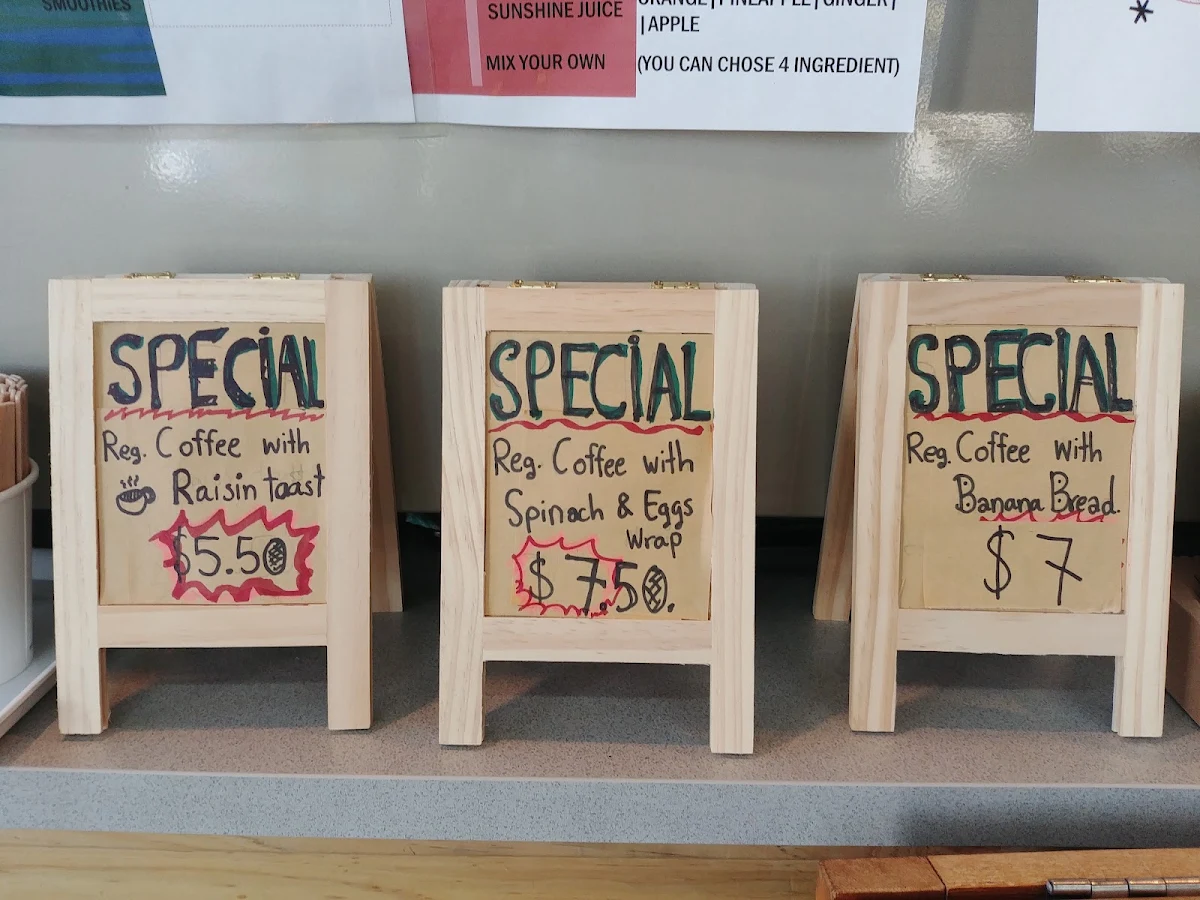 SMOOTHIES
SUNSHINE JUICE
ORANGE | PINEAPPLE | GINGER |
| APPLE
MIX YOUR OWN (YOU CAN CHOSE 4 INGREDIENT)
SPECIAL
Reg. Coffee with
Raisin toast
$5.50
SPECIAL
Reg. Coffee with
Spinach & Eggs
Wrap
$7.50.
SPECIAL
Reg. Coffee with
Banana Bread.
$7